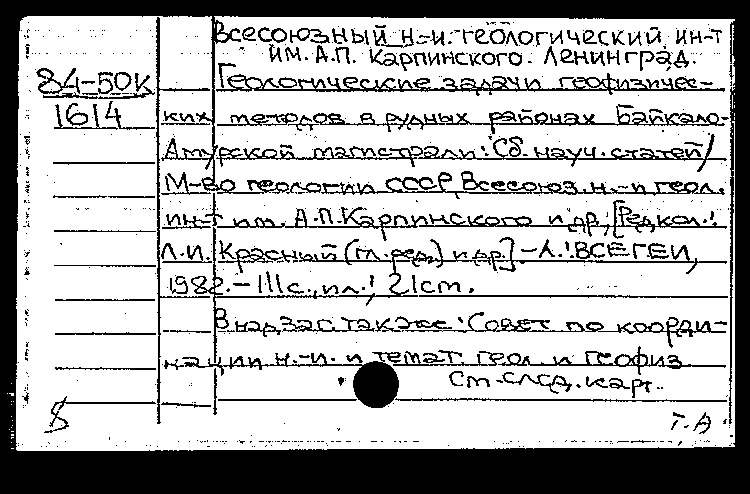 Всесоюзный н.-и. геологический ин-т
им. А.П. Карпинского. Ленинград.
84-50К
Геологические задачи геофизичес-
1614
ких методов в рудных районах Байкало-
Амурской магистрали: Сб. науч. статей /
М-во геологии СССР, Всесоюз. н.-и. геол.
ин-т им. А.П. Карпинского и др.; [Редкол.:
Л.И. Красный (гл. ред.) и др.] - Л.: ВСЕГЕИ,
1982. - 111 с., ил.; 21 см.
В надзаг. также: Совет по коорди-
нации н.-и. и темат. геол. и геофиз.
См. след. карт.
8
Т. А